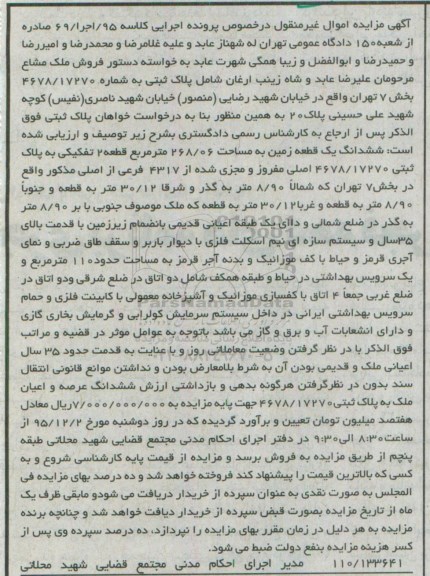 آگهی مزایده اموال غیرمنقول درخصوص پرونده اجرایی کلاسه ۹۵/اجرا/۶۹ صادره
از شعبه۱۵۰ دادگاه عمومی تهران له شهناز عابد و علیه غلامرضا و محمدرضا و امیررضا
و حمیدرضا و ابوالفضل و زیبا همگی شهرت عابد به خواسته دستور فروش ملک مشاع
مرحومان علیرضا عابد و شاه زینب ارغان شامل پلاک ثبتی به شماره ۴۶۷۸/۱۷۲۷۰
بخش ۷ تهران واقع در خیابان شهید رضایی (منصور) خیابان شهید ناصری(نفیس) کوچه
شهید علی حسینی پلاک۲۰ به همین منظور بنا به درخواست خواهان پلاک ثبتی فوق
الذکر پس از ارجاع به کارشناس رسمی دادگستری بشرح زیر توصیف و ارزیابی شده
است: ششدانگ یک قطعه زمین به مساحت ۲۶۸/۰۶ مترمربع قطعه۲ تفکیکی به پلاک
ثبتی ۴۶۷۸/۱۷۲۷۰ اصلی مفروز و مجزی شده از ۴۳۱۷ فرعی از اصلی مذکور واقع
در بخش۷ تهران که شمالاً ۸/۹۰ متر به گذر و شرقا ۳۰/۱۲ متر به قطعه و جنوباً
۸/۹۰ متر به قطعه و غربا۳۰/۱۲ متر به قطعه که ملک موصوف جنوبی با بر ۸/۹۰ متر
به گذر در ضلع شمالی و داای یک طبقه اعیانی قدیمی بانضمام زیرزمین با قدمت بالای
۳۵سال و سیستم سازه ای نیم اسکلت فلزی با دیوار باربر و سقف طاق ضربی و نمای
آجری قرمز و حیاط با کف موزائیک و بدنه آجر قرمز به مساحت حدود۱۱۰ مترمربع و
یک سرویس بهداشتی در حیاط و طبقه همکف شامل دو اتاق در ضلع شرقی ودو اتاق در
ضلع غربی جمعاً ۴ اتاق با کفسازی موزائیک و آشپزخانه معمولی با کابینت فلزی و حمام
سرویس بهداشتی ایرانی در داخل سیستم سرمایش کولرابی و گرمایش بخاری گازی
و دارای انشعابات آب و برق و گاز می باشد باتوجه به عوامل موثر در قضیه و مراتب
فوق الذکر با در نظر گرفتن وضعیت معاملاتی روز و با عنایت به قدمت حدود ۳۵ سال
اعیانی ملک و قدیمی بودن آن به شرط بلامعارض بودن و نداشتن موانع قانونی انتقال
سند بدون در نظرگرفتن هرگونه بدهی و بازداشتی ارزش ششدانگ عرصه و اعیان
ملک به پلاک ثبتی۴۶۷۸/۱۷۲۷۰ جهت پایه مزایده به ۷/۰۰۰/۰۰۰/۰۰۰ریال معادل
هفتصد میلیون تومان تعیین و برآورد گردیده که در روز دوشنبه مورخ ۹۵/۱۲/۲ از
ساعت۸:۳۰ الی۹:۳۰ در دفتر اجرای احکام مدنی مجتمع قضایی شهید محلاتی طبقه
پنجم از طریق مزایده به فروش برسد و مزایده از قیمت پایه کارشناسی شروع و به
کسی که بالاترین قیمت را پیشنهاد کند فروخته خواهد شد و ده درصد بهای مزایده فی
المجلس به صورت نقدی به عنوان سپرده از خریدار دریافت می شودو مابقی ظرف یک
ماه از تاریخ مزایده بصورت قبض سپرده از خریدار دیافت خواهد شد و چنانچه برنده
مزایده به هر دلیل در زمان مقرر بهای مزایده را نپردازد، ده درصد سپرده وی پس از
کسر هزینه مزایده بنفع دولت ضبط می شود.
۱۱۰/۱۳۳۶۴۱ مدیر اجرای احکام مدنی مجتمع قضایی شهید محلاتی